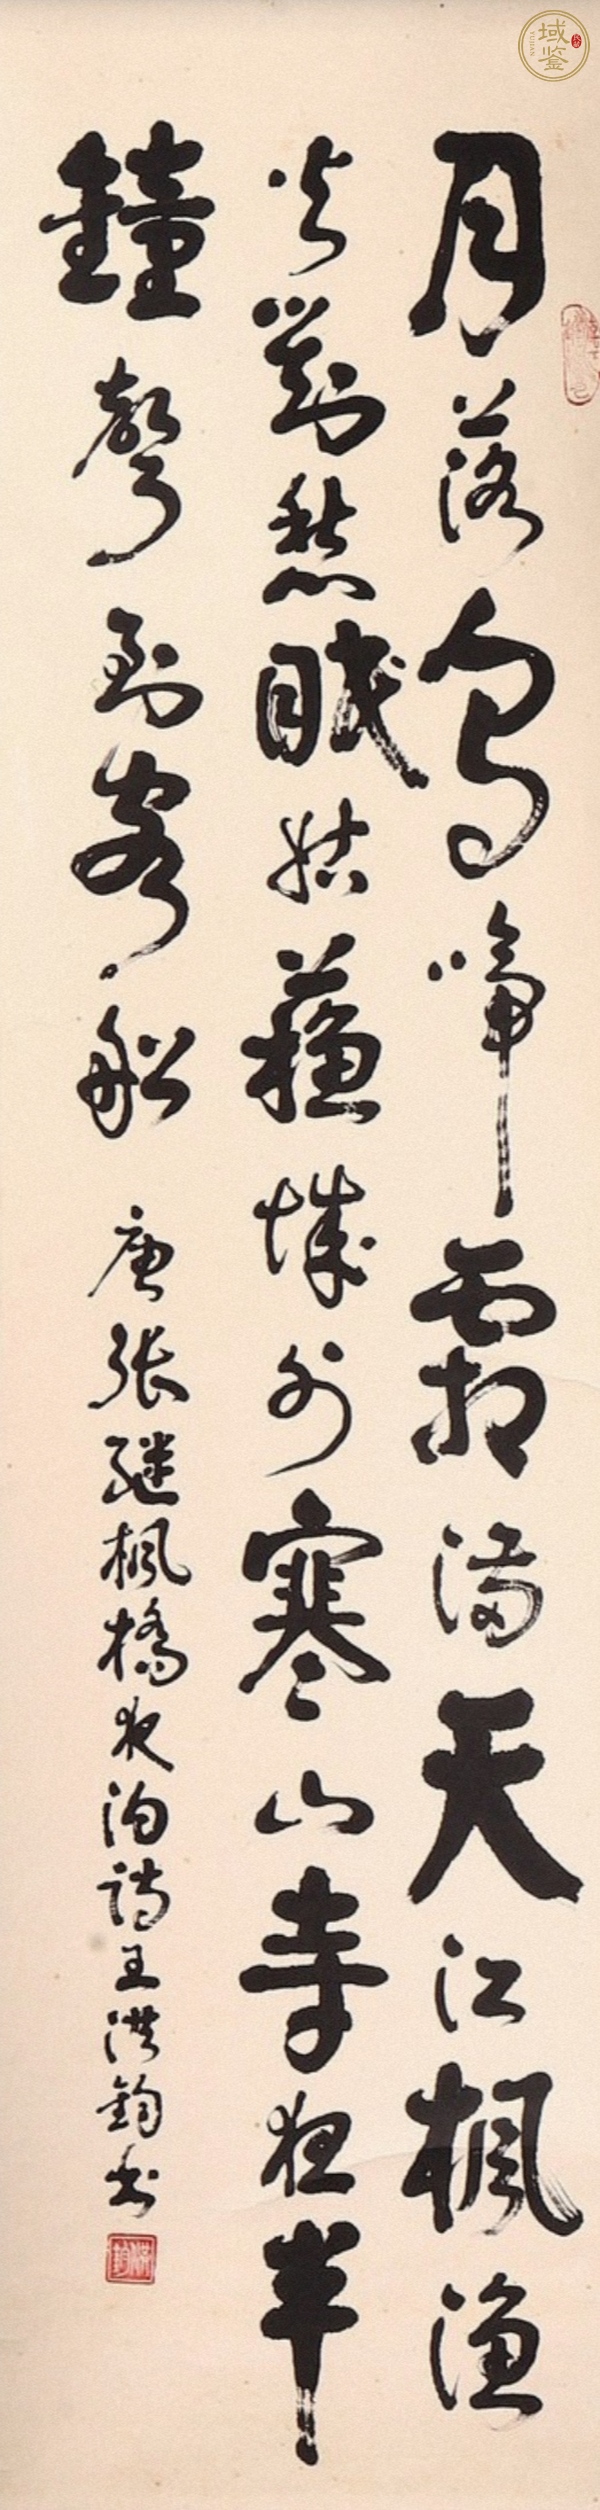 月落烏啼霜滿天江楓漁
火對愁眠姑蘇城外寒山寺夜半
鐘聲到客船
唐張継楓橋夜泊詩王洪鈞書
域鉴